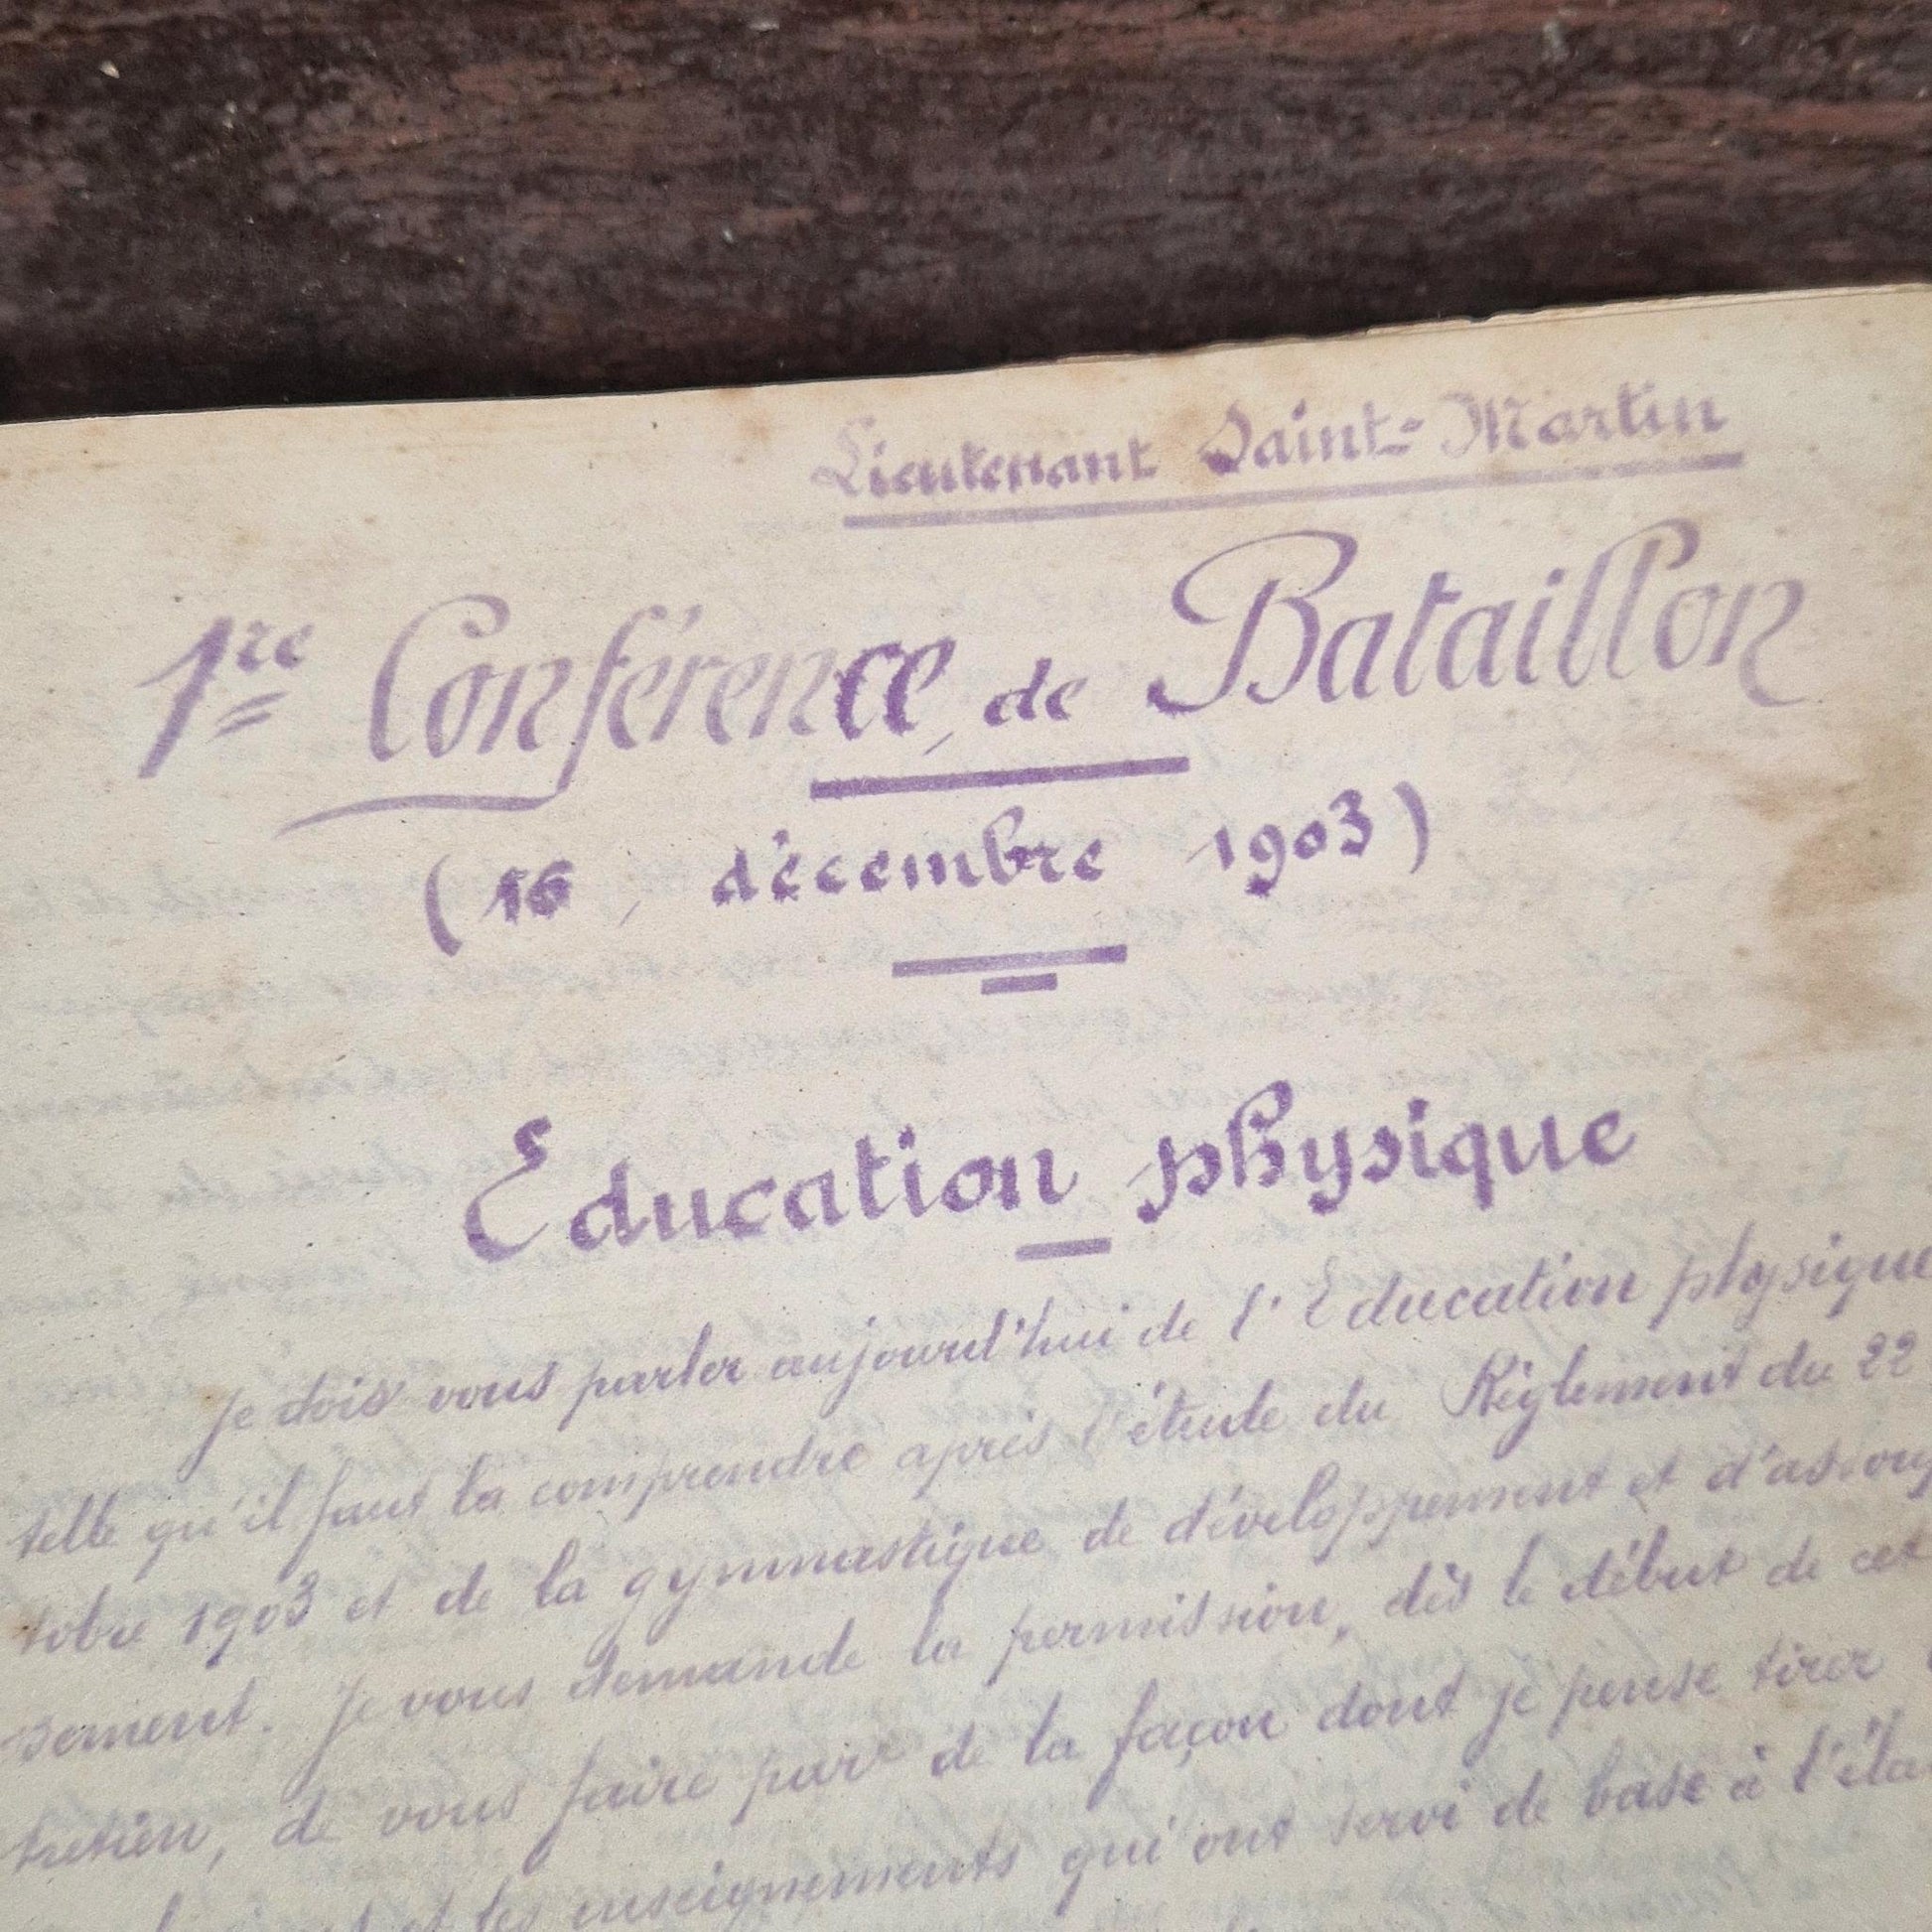 Lieutenant Saint-Martin
1re Conférence de Bataillon
(16 décembre 1903)
Education physique
Je dois vous parler aujourd'hui de l'Education physique
telle qu'il faut la comprendre après l'étude du Règlement du 22
tobre 1903 et de la gymnastique de développement et d'assoup
sement. Je vous demande la permission, dès le début de cet
tretien, de vous faire part de la façon dont je pense tirer
et les enseignements qui ont servi de base à l'éla